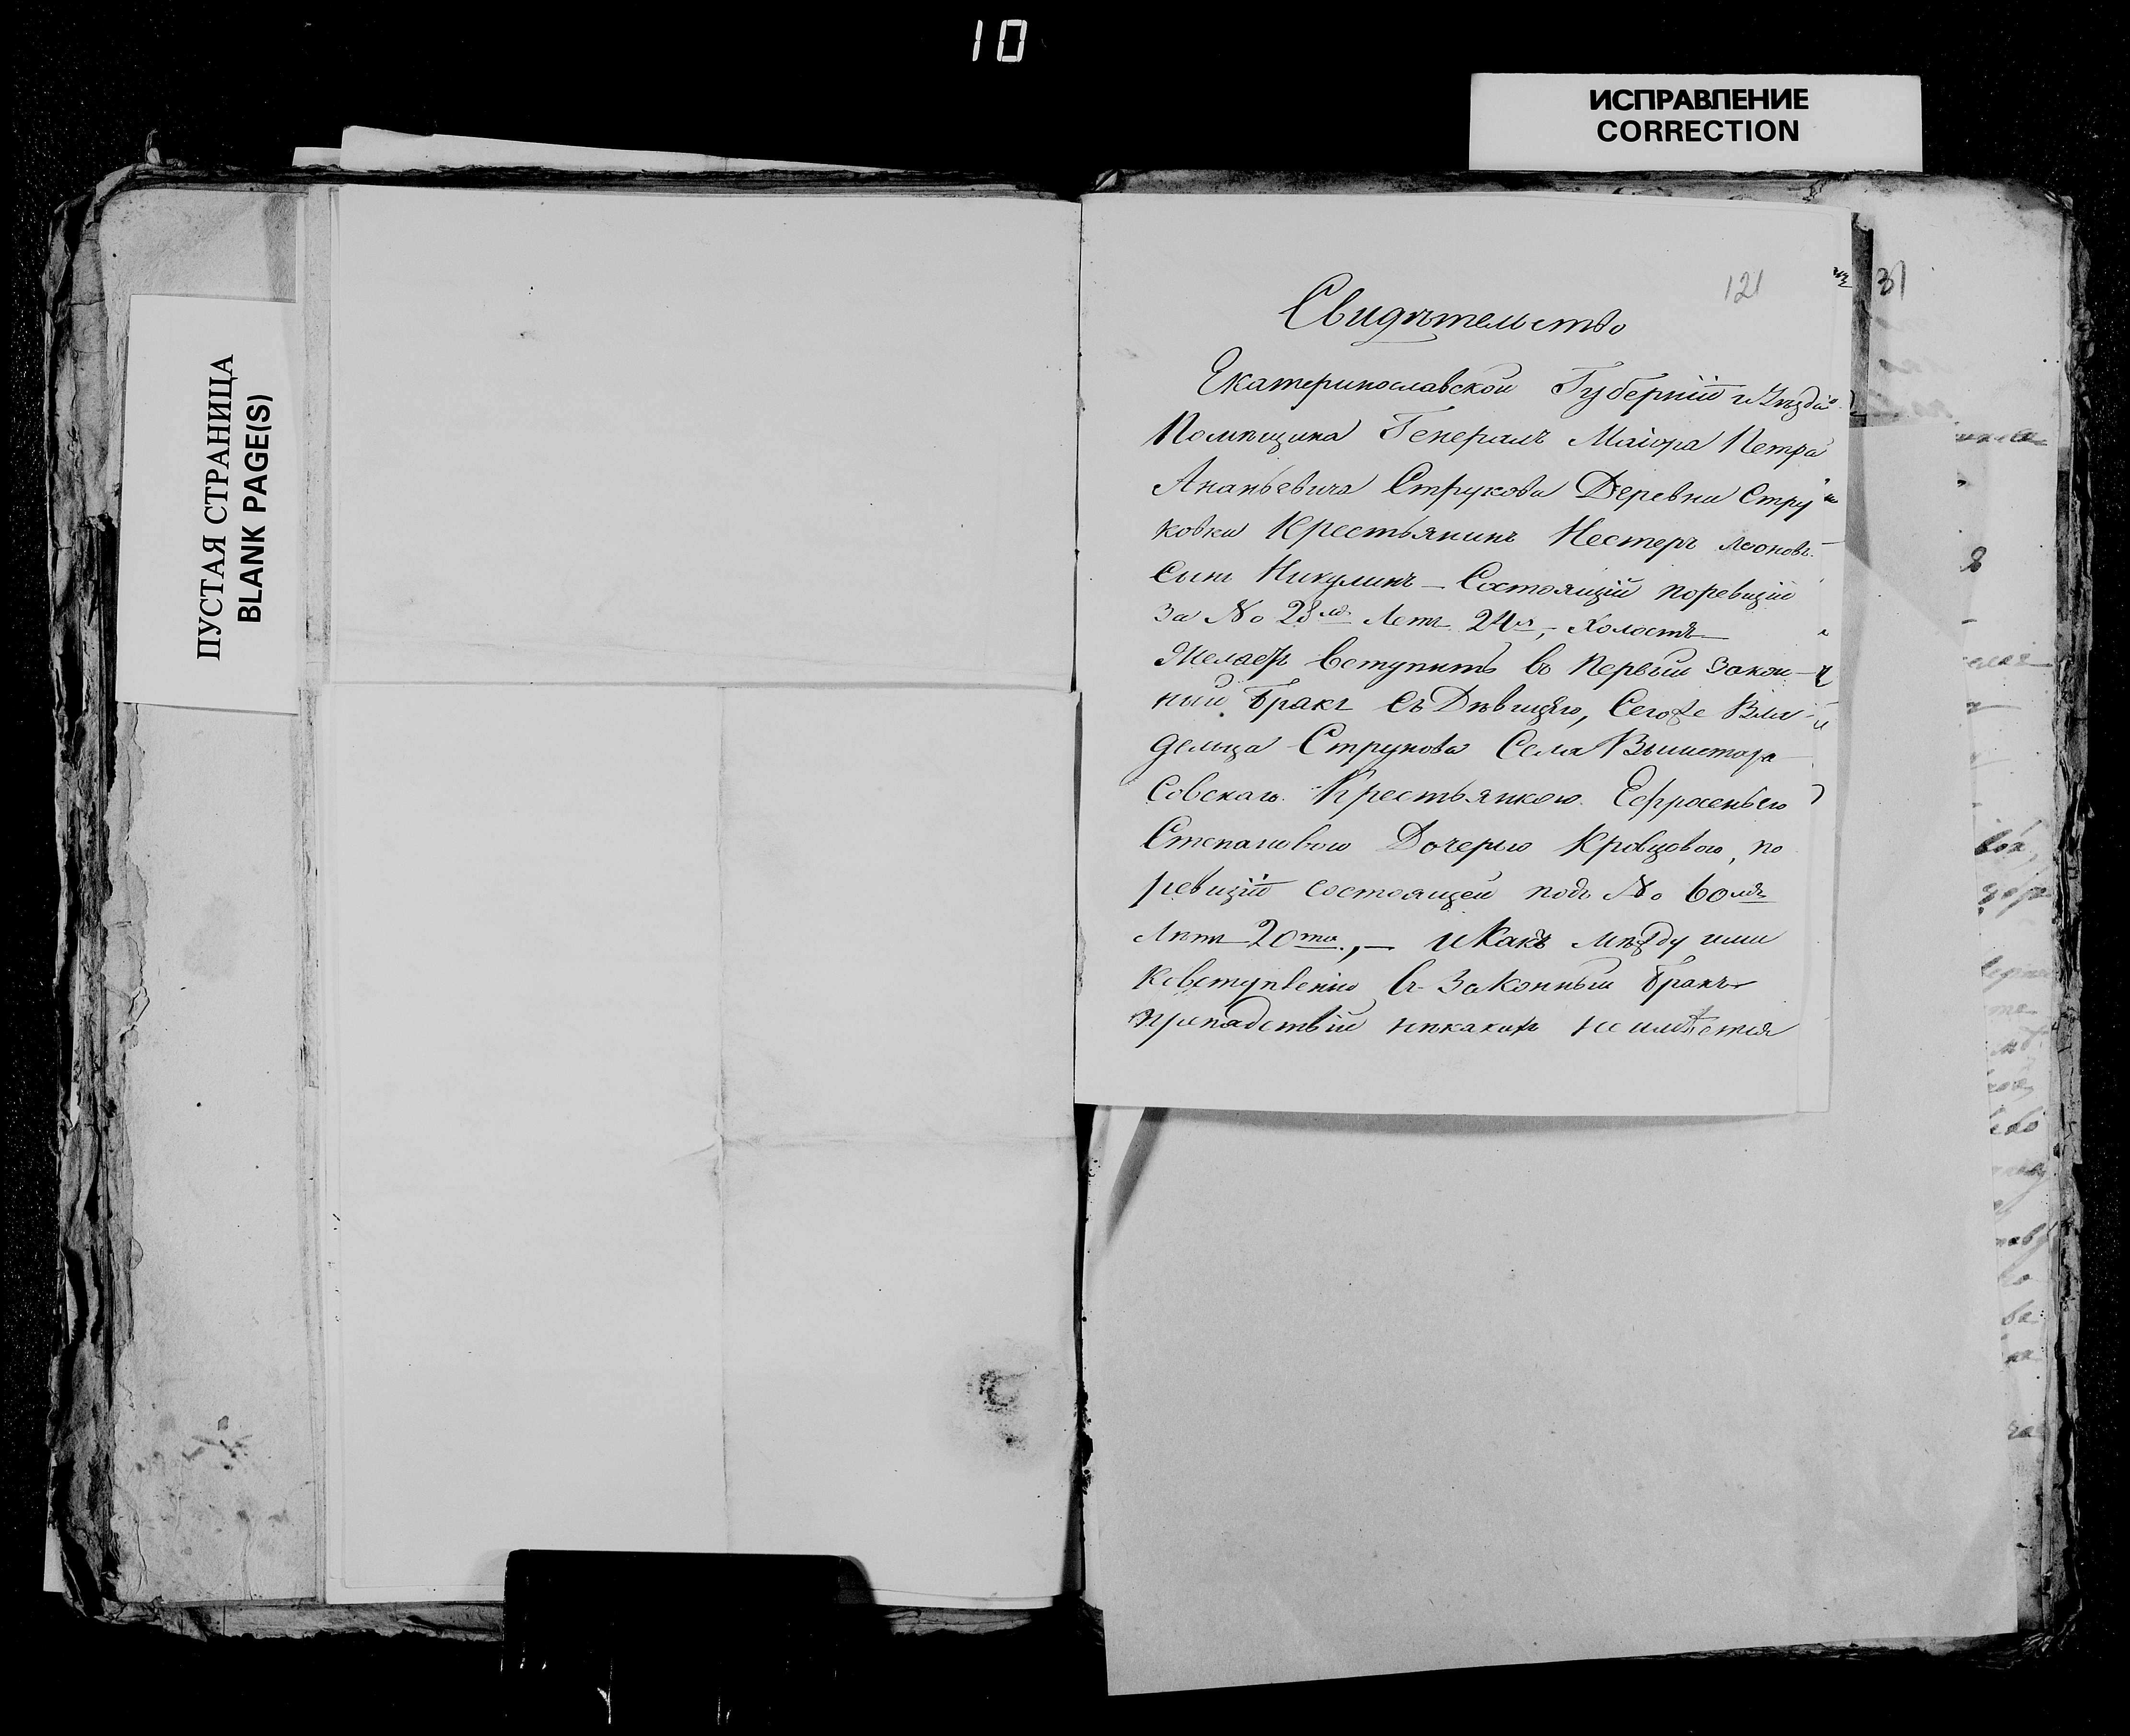 10
ИСПРАВЛЕНИЕ
CORRECTION
ПУСТАЯ СТРАНИЦА
BLANK PAGE(S)
121
31
Свидѣтельство
Екатеринославской Губерніи и Уѣзда
Помѣщика Генералъ Маіора Петра
Ананьевича Струкова Деревни Стру
ковки Крестьянинъ Нестеръ Леоновъ
Сынъ Никулинъ – Состоящій поревизіи
За № 28мъ Летъ 24ъ, – Холостъ
Желаетъ вступить въ Первый Закон–
ный Бракъ съ Дѣвицѣю, Сегоже Вла–
дельца Струкова Села Вышетара–
Совскаго Крестьянкою Ефросеньею
Степановою Дочерью Кровцовою, по
ревизіи состоящей подъ № 60мъ
Лѣтъ 20ти, – и Какъ Мѣжду ими
Ковступленію въ Законный Бракъ
препядствій никакихъ не имѣется